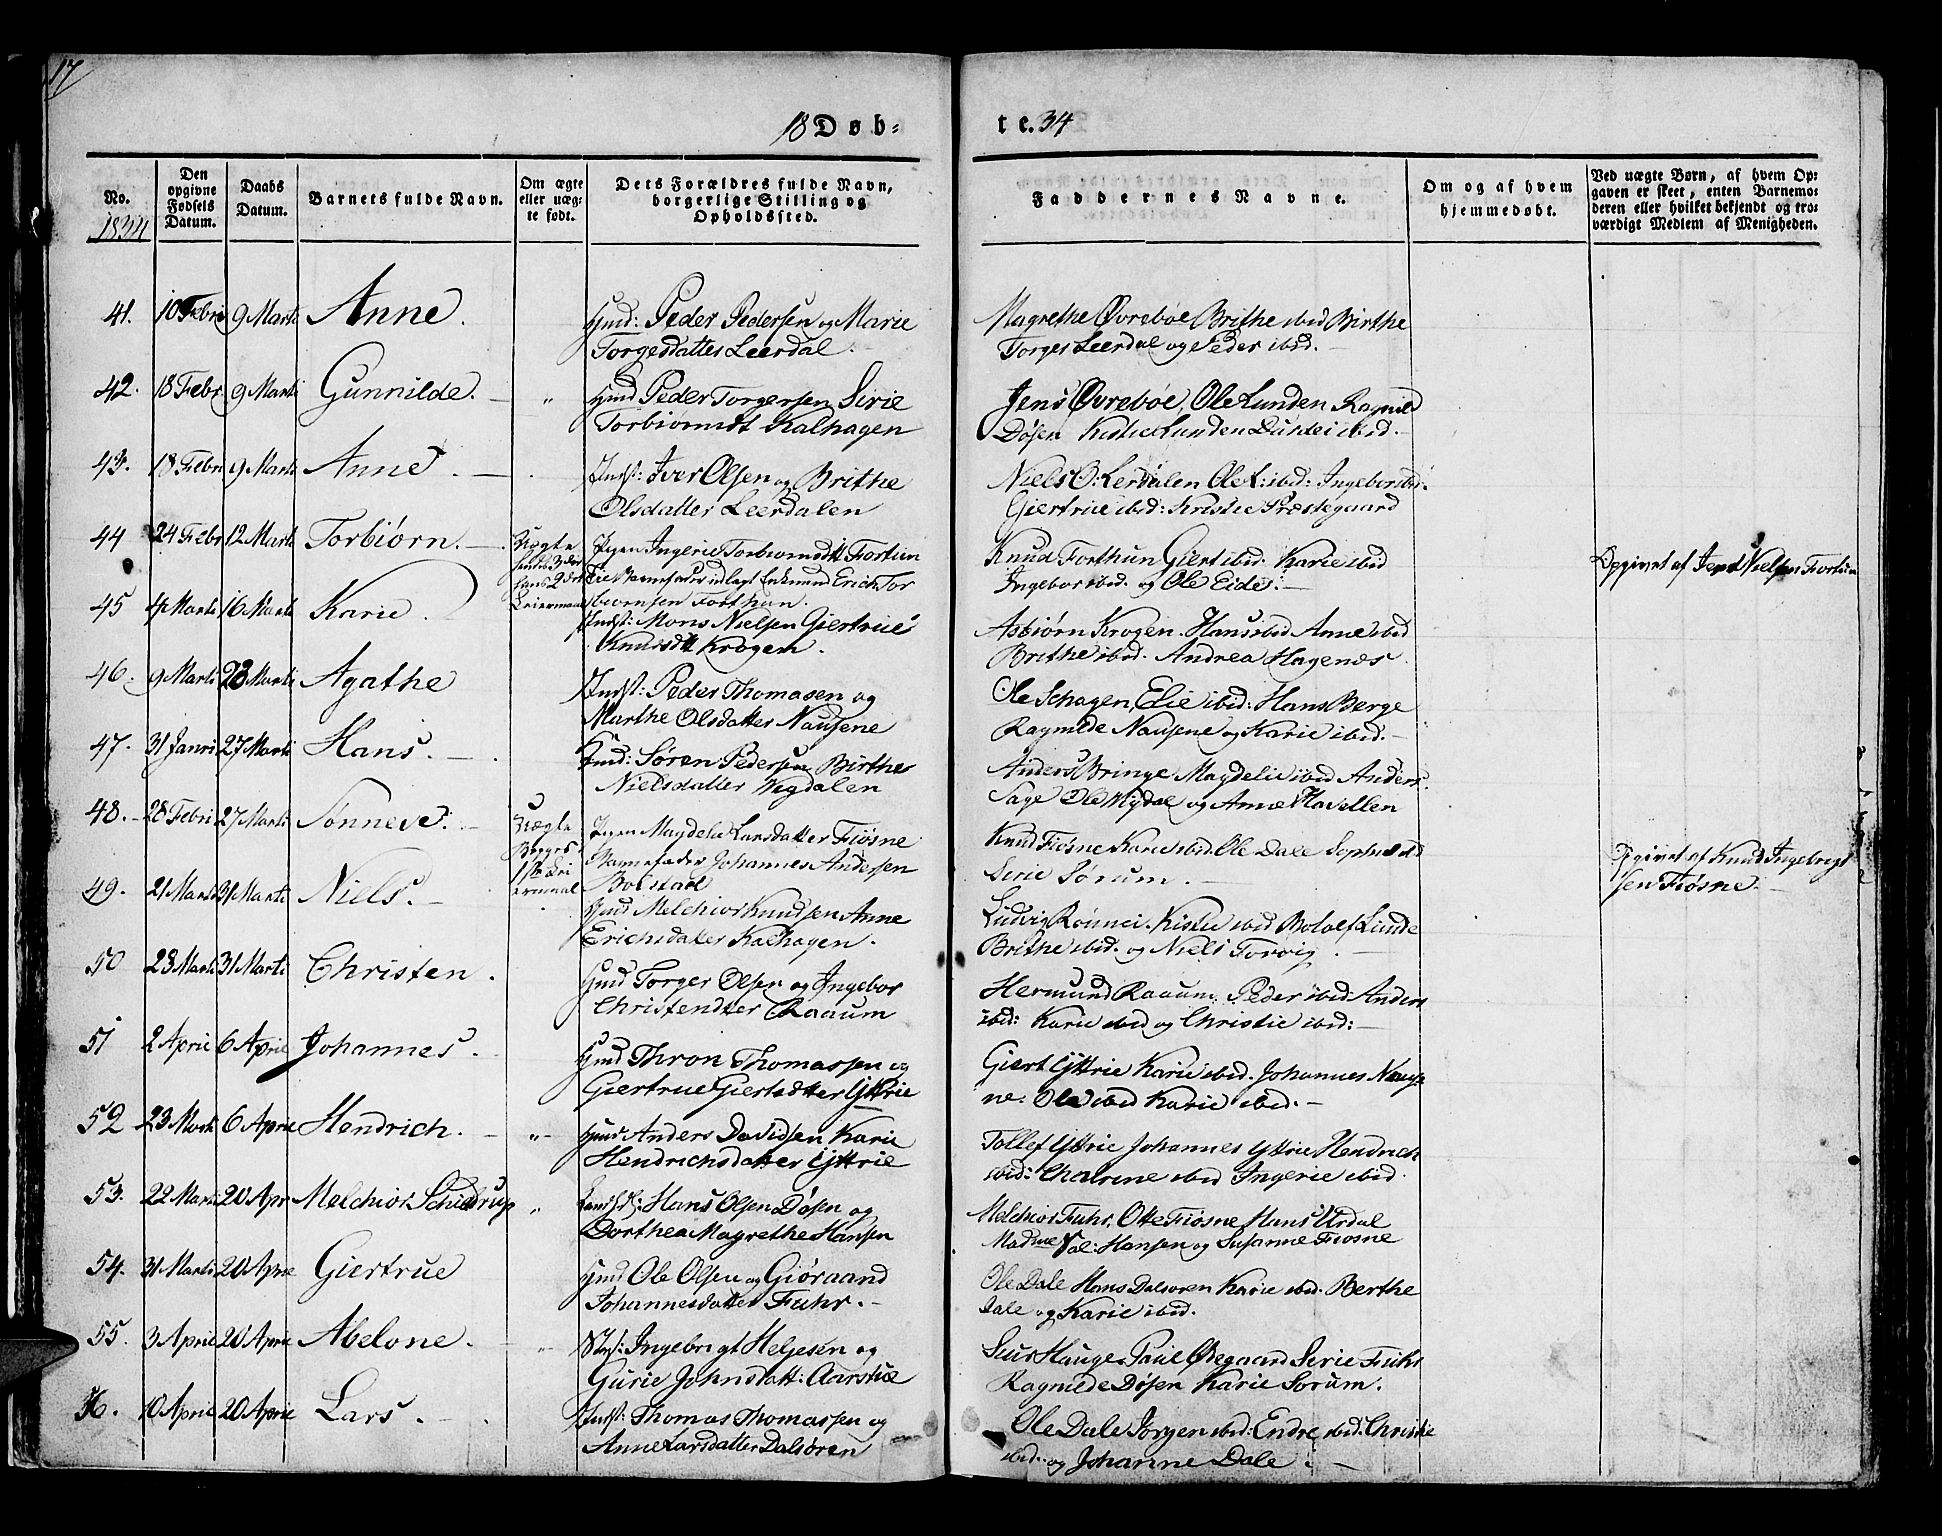 17
18 Døb-
te. 34
No.
1834
Den opgivne Fødsels Datum.
Daabs Datum.
Barnets fulde Navn.
Om ægte eller uægte født.
Dets Forældres fulde Navn, borgerlige Stilling og Opholdssted.
Faddernes Navne.
Om og af hvem hjemmedøbt.
Ved uægte Børn, af hvem Opgaven er skeet, enten Barnemoderen eller hvilket bekjendt og troværdigt Medlem af Menigheden.
41. 10 Febri 9 Marti Anne. Huusmd: Peder Pedersen og Marie
Torgesdatter Leerdal.
Magrethe Øvrebøe Brithe ibid Birthe
Torges Leerdal og Peder ibid.
42. 18 Febr 9 Marti Gunnilde. " Huusmd Peder Torgersen Sirie
Torbiørnsdt Kalhagen
Jens Øvrebøe, Ole Lunden Ragnild
Døsen Kistie Lunden Dustei ibid.
43. 18 Febri 9 Marti Anne. Indst: Iver Olsen og Brithe
Olsdatter Leerdalen
Niels O: Lerdalen Ole L: ibid: Ingebor ibd.
Giertrue ibid: Kristie Præstegaard
44 24 Febr 12 Marti Torbiørn. Uægte
Pigen Ingerie Torbiørnsdtt Fortun
Barnefader udlagt Enkmand Erich Tor
biørnsen Forthun.
Knud Forthun Giert ibid. Karie ibid
Ingebor ibid. og Ole Eide.
Opgivet af Jens Nielsen Fortun
45 4 Marti 16 Marti Karie. Indst: Mons Nielsen Giertrue
Knudsdtt Krogen.
Asbiørn Krogen. Hans ibid Anne ibid
Brithe ibid. Andrea Hagenæs.
46. 9 Marti 23 Marti Agathe Indst: Peder Thomasen og
Marthe Olsdatter Nausene
Ole Schagen, Elie ibid: Hans Berge
Ragnilde Nausene og Karie ibid.
47. 31 Janri 27 Marti Hans. Huusmd: Søren Pedersen Birthe
Nielsdatter Vigdalen
Anders Bringe Magdelie ibid Anders
Sage Ole Vigdal og Anne Havellen
48. 28 Febri 27 Marti Sønneve. Uægte
Begges
1ste Lei
ermaal
Pigen Magdele Larsdatter Fiøsne
Barnefader Johannes Andersen
Bolstad
Knud Fiøsne Karie ibid. Ole Dale Sophie ibd
Sirie Sørum.
Opgivet af Knud Ingebrigt
sen Fiøsne.
49. 21 Marti 31 Marti Niels. Huusmd Melchior Knudsen Anne
Erichsdatter Kalhagen.
Ludvig Rønnei. Kistie ibid Botolf Linde
Brithe ibid. og Niels Torvig.
50 23 Marti 31 Marti Christen. Huusmd Torger Olsen og Ingebor
Christendtter Raaum
Hermund Raaum, Peder ibid: Anders
ibid: Karie ibid og Christie ibid:
51 2 Aprie 6 Aprie Johannes. Huusmd Thron Thomassen og
Giertrue Giertsdtter Yttrie
Giert Yttrie Karie ibid. Johannes Nause
ne. Ole ibid Karie ibid.
52 23 Marti 6 Aprie Hendrich. " Huusmd Anders Davidsen Karie
Hendrichsdatter Yttrie
Tollef Yttrie Johannes Yttrie Hendrich
ibid: Chatrine ibid Ingerie ibid.
53. 22 Marti 20 Apr Melchior Schieldrup " Hans Olsen Døsen og
Dorthea Magrethe Hansen
Melchior Fuhr, Otte Fiøsne Hans Urdal
Madme Val: Hansen og Susanne Fiosne
54. 31 Marti 20 Aprie Giertrue Huusmd Ole Olsen og Giøraand
Johannesdatter Fuhr.
Ole Dale Hans Dalsøren Karie ibid. Berthe
Dale og Karie ibid.
55. 3 Aprie 20 Aprie Abelone. " Indst: Ingebrigt Heljesen og
Gurie Johnsdatt: Aarstue
Siur Hauge Paul Ødegaard Sirie Fuhr
Ragnilde Døsen Karie Sorum.
56. 10 Aprie 20 Aprie Lars. Indst: Thomas Thomassen og
Anne Larsdatter Dalsøren
Ole Dale Jørgen ibid: Endre ibid: Christie
ibid: og Johanne Dale.